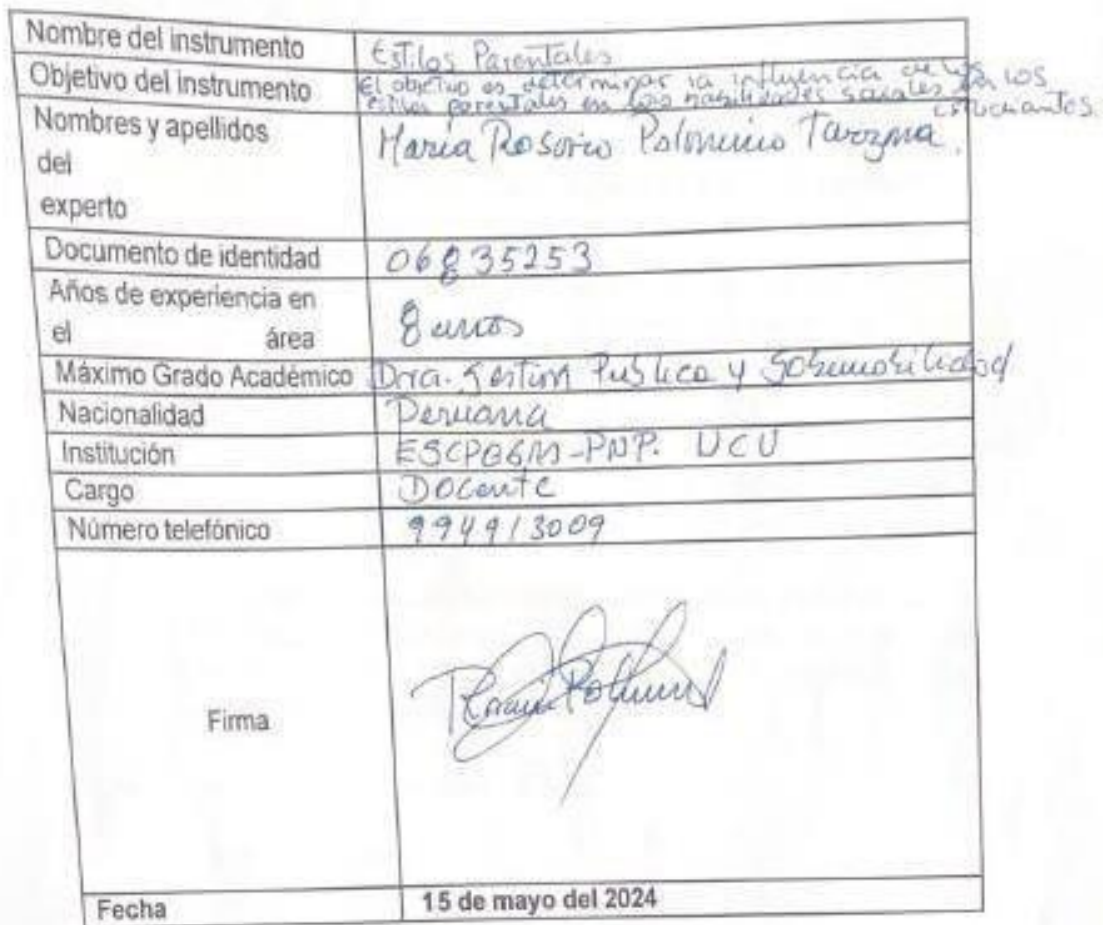 Nombre del instrumento Estilos Parentales
Objetivo del instrumento El objetivo es determinar la influencia de los
estilos parentales en las habilidades sociales en los
estudiantes.
Nombres y apellidos
del
experto
María Rosario Palomino Tarazona.
Documento de identidad 06835253
Años de experiencia en
el área
8 años
Máximo Grado Académico Dra. Gestión Pública y Gobernabilidad
Nacionalidad Peruana
Institución PNP. UCU
Cargo Docente
Número telefónico 994913009
Firma
Fecha 15 de mayo del 2024